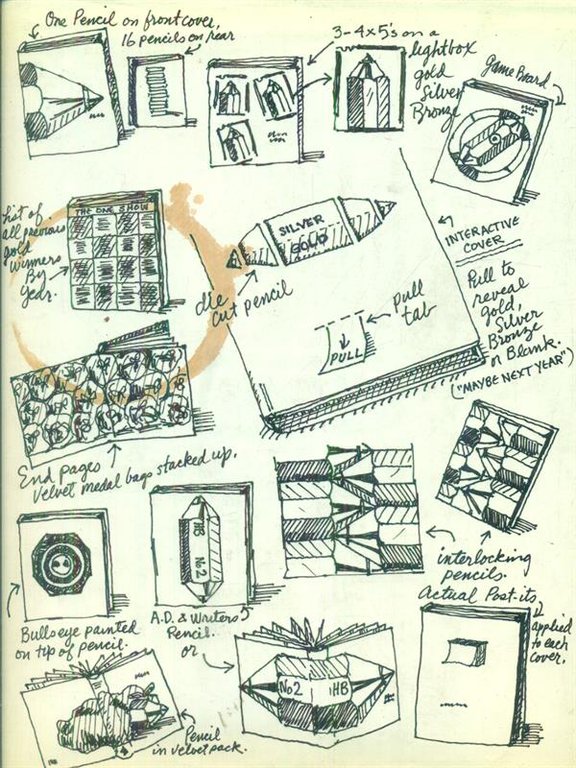 One Pencil on front cover,
16 pencils on rear
3-4x5's on a
lightbox
gold
Silver
Bronze
Game Board
List of
all previous
gold
winners
By
year.
THE ONE SHOW
SILVER
GOLD
die
cut pencil
pull
tab
PULL
INTERACTIVE
COVER
Pull to
reveal
gold,
Silver
Bronze
or Blank.
("MAYBE NEXT YEAR")
End pages
Velvet medal bags stacked up.
HB
No2
interlocking
pencils.
Bullseye painted
on top of pencil.
A.D. & Writers
Pencil.
or
No2
HB
Actual Post-its
applied
to each
cover.
Pencil
in velvet pack.